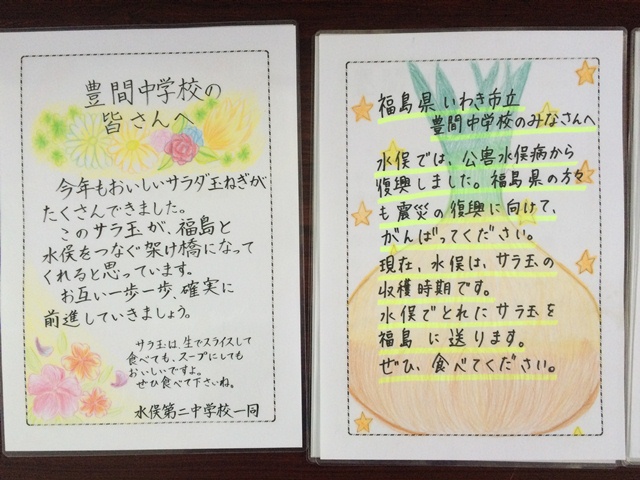 豊間中学校の
皆さんへ
今年もおいしいサラダ玉ねぎが
たくさんできました。
このサラ玉が、福島と
水俣をつなぐ架け橋になって
くれると思っています。
お互い一歩一歩、確実に
前進していきましょう。
サラ玉は、生でスライスして
食べても、スープにしても
おいしいですよ。
ぜひ食べて下さいね。
水俣第二中学校一同
福島県いわき市立
豊間中学校のみなさんへ
水俣では、公害水俣病から
復興しました。福島県の方々
も震災の復興に向けて、
がんばってください。
現在、水俣は、サラ玉の
収穫時期です。
水俣でとれたサラ玉を
福島に送ります。
ぜひ、食べてください。